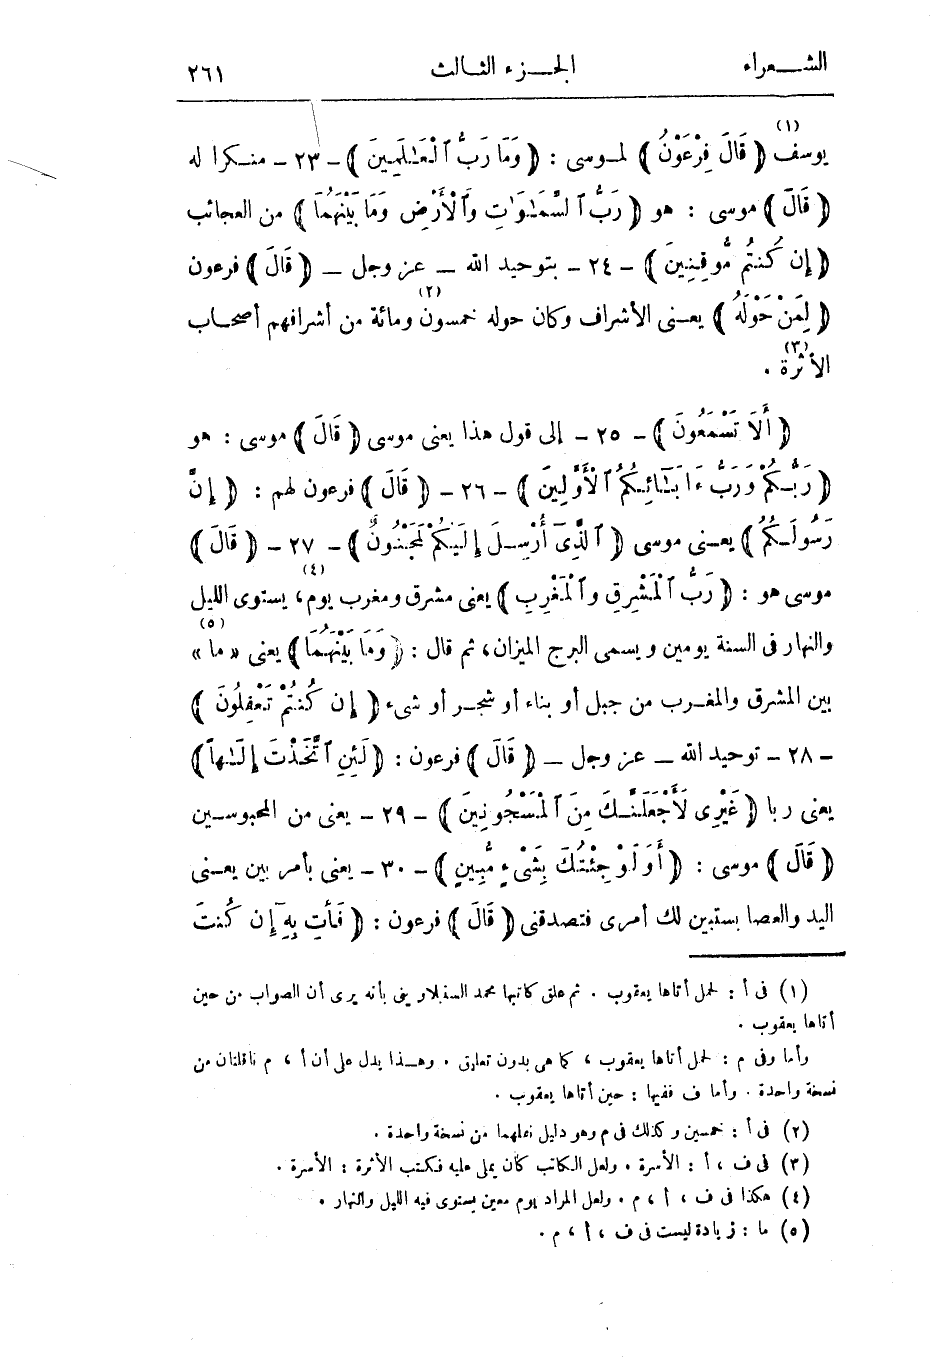 الشعراء الجزء الثالث ٢٦١
يوسف (١) ﴿ قَالَ فِرْعَوْنُ ﴾ لموسى : ﴿ وَمَا رَبُّ ٱلْعَـٰلَمِينَ ﴾ - ٢٣ - منكرا له
﴿ قَالَ ﴾ موسى : هو ﴿ رَبُّ ٱلسَّمَـٰوَٰتِ وَٱلْأَرْضِ وَمَا بَيْنَهُمَا ﴾ من العجائب
﴿ إِن كُنتُم مُّوقِنِينَ ﴾ - ٢٤ - بتوحيد الله - عز وجل - ﴿ قَالَ ﴾ فرعون
﴿ لِمَنْ حَوْلَهُ ﴾ يعنى الأشراف وكان حوله خمسون (٢) ومائة من أشرافهم أصحاب
الأثرة (٣) .
﴿ أَلَا تَسْتَمِعُونَ ﴾ - ٢٥ - إلى قول هذا يعنى موسى ﴿ قَالَ ﴾ موسى : هو
﴿ رَبُّكُمْ وَرَبُّ ءَابَآئِكُمُ ٱلْأَوَّلِينَ ﴾ - ٢٦ - ﴿ قَالَ ﴾ فرعون لهم : ﴿ إِنَّ
رَسُولَكُمُ ﴾ يعنى موسى ﴿ ٱلَّذِىٓ أُرْسِلَ إِلَيْكُمْ لَمَجْنُونٌ ﴾ - ٢٧ - ﴿ قَالَ ﴾
موسى هو : ﴿ رَبُّ ٱلْمَشْرِقِ وَٱلْمَغْرِبِ ﴾ يعنى مشرق ومغرب يوم (٤) ، يستوى الليل
والنهار فى السنة يومين ويسمى البرج الميزان، ثم قال : ﴿ وَمَا بَيْنَهُمَا ﴾ يعنى « ما » (٥)
بين المشرق والمغرب من جبل أو بناء أو شجر أو شىء ﴿ إِن كُنتُمْ تَعْقِلُونَ ﴾
- ٢٨ - توحيد الله - عز وجل - ﴿ قَالَ ﴾ فرعون : ﴿ لَئِنِ ٱتَّخَذْتَ إِلَـٰهاً ﴾
يعنى ربا ﴿ غَيْرِى لَأَجْعَلَنَّكَ مِنَ ٱلْمَسْجُونِينَ ﴾ - ٢٩ - يعنى من المحبوسين
﴿ قَالَ ﴾ موسى : ﴿ أَوَلَوْ جِئْتُكَ بِشَىْءٍ مُّبِينٍ ﴾ - ٣٠ - يعنى بأمر بين يعنى
اليد والعصا يستبين لك أمرى فتصدقنى ﴿ قَالَ ﴾ فرعون : ﴿ فَأْتِ بِهِٓ إِن كُنتَ
(١) فى أ : لحمل أتاها يعقوب . ثم علق كاتبها محمد السنبلاوينى بأنه يرى أن الصواب من حين
أتاها يعقوب .
وأما وفى م : لحمل أتاها يعقوب ، كما هى بدون تعليق . وهذا يدل على أن أ ، م ناقلتان من
نسخة واحدة . وأما ف ففيها : حين أتاها يعقوب .
(٢) فى أ : خمسين وكذلك فى م وهو دليل نقلهما من نسخة واحدة .
(٣) فى ف ، أ : الأسرة . ولعل الكاتب كان يملى عليه فكتب الأثرة : الأسرة .
(٤) هكذا فى ف ، أ ، م . ولعل المراد يوم معين يستوى فيه الليل والنهار .
(٥) ما : زيادة ليست فى ف ، أ ، م .